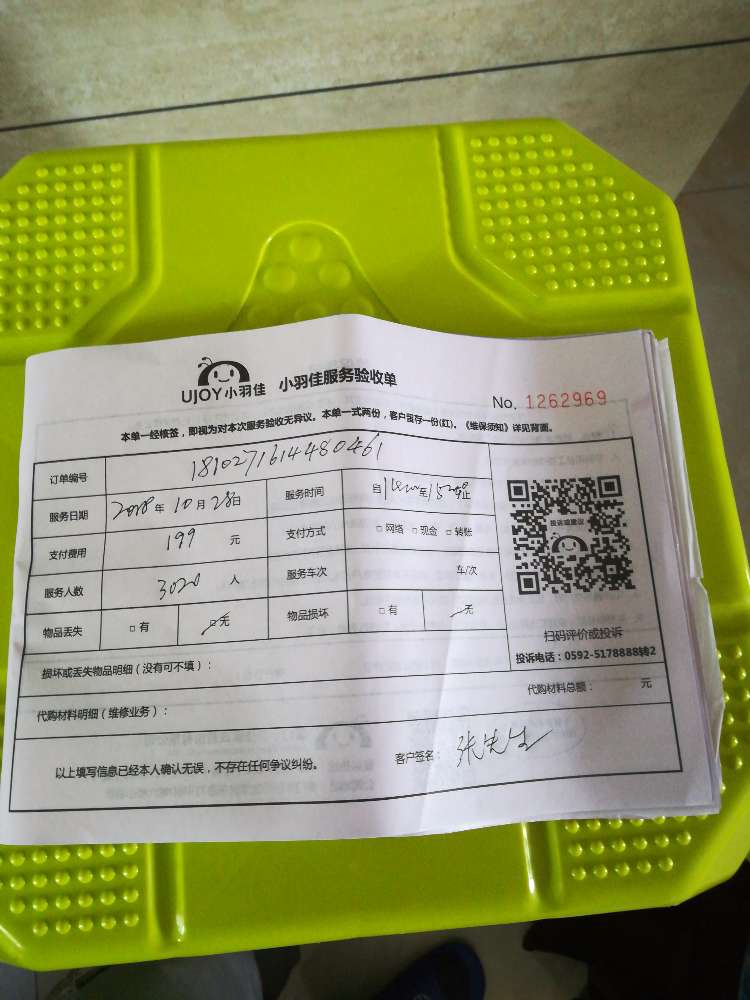 UJOY小羽佳 小羽佳服务验收单
No. 1262969
本单一经核签，即视为对本次服务验收无异议。本单一式两份，客户留存一份(红)。《维保须知》详见背面。
订单编号 1810271614480461
服务日期 2018 年 10 月 28 日 服务时间 自 至 止
支付费用 199 元 支付方式 □ 网络 □ 现金 □ 转账
服务人数 3020 人 服务车次 车/次
物品丢失 □ 有 □ 无 物品损坏 □ 有 无
投诉或建议
扫码评价或投诉
投诉电话：0592-5178888转2
损坏或丢失物品明细（没有可不填）：
代购材料明细（维修业务）： 代购材料总额： 元
以上填写信息已经本人确认无误，不存在任何争议纠纷。 客户签名： 张先生